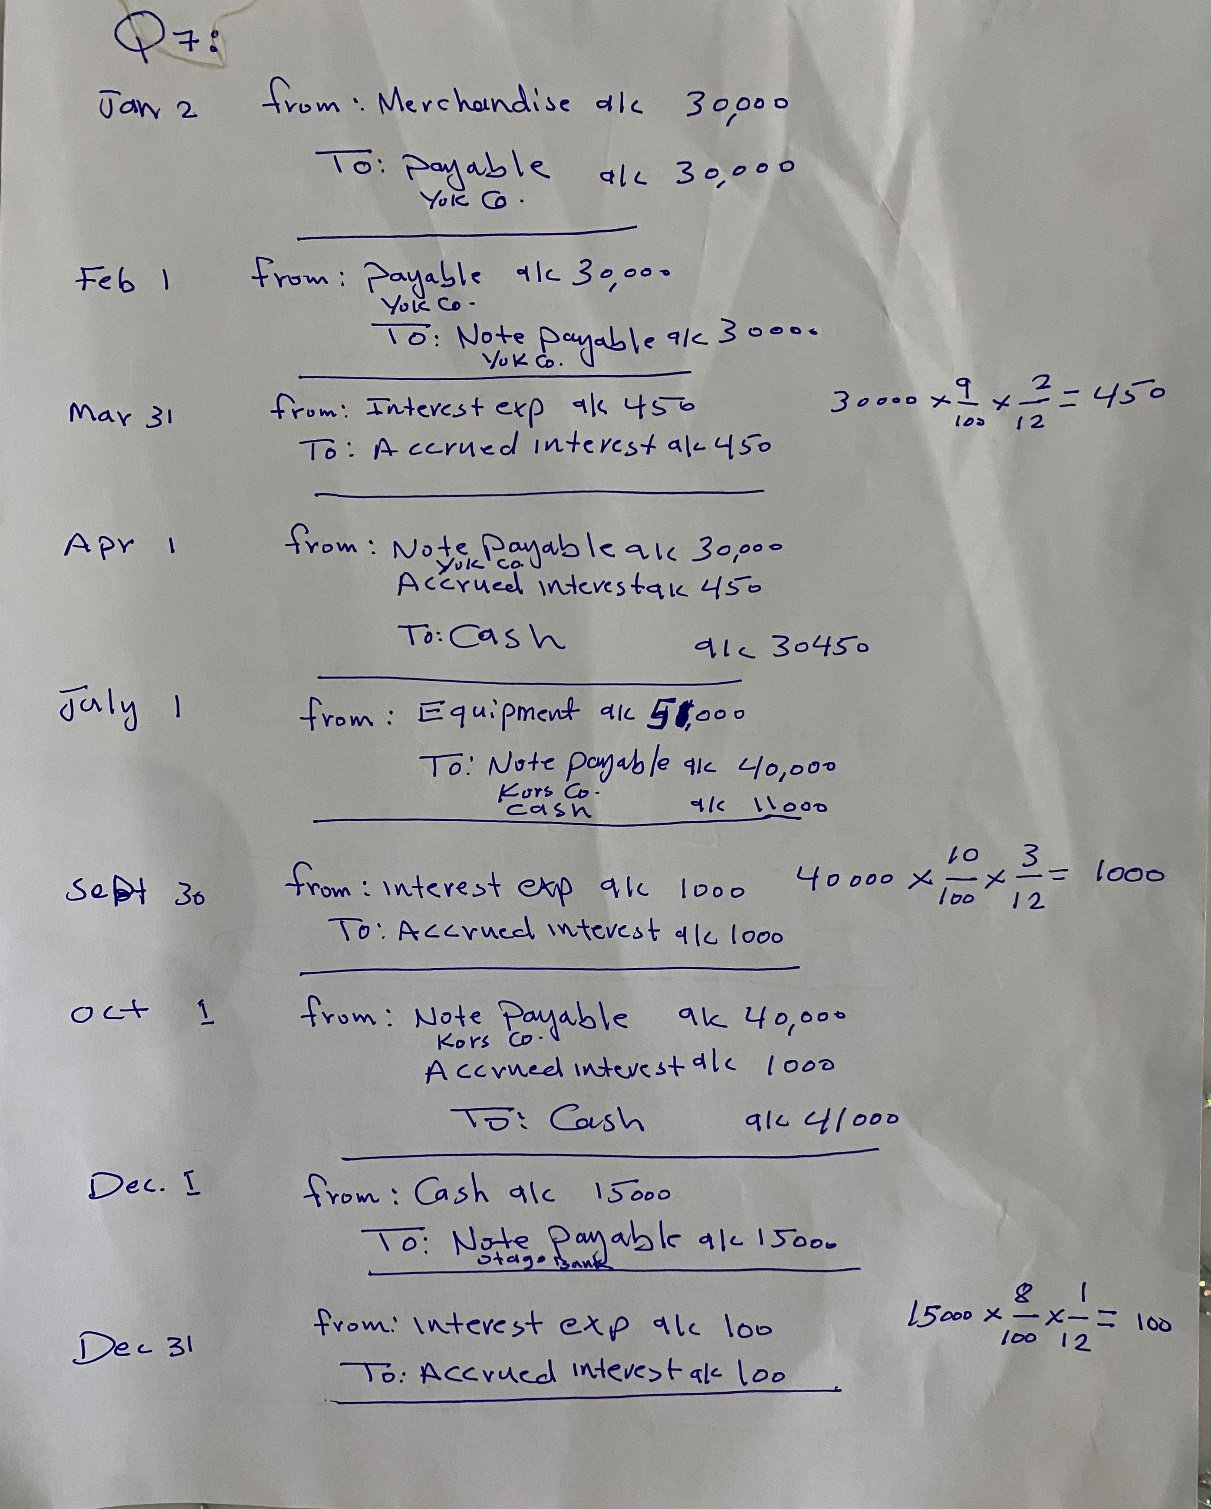 Q7:
Jan 2 from: Merchandise a/c 30,000
To: payable a/c 30,000
Yuk Co.
Feb 1 from: payable a/c 30,000
Yuk Co.
To: Note payable a/c 30000
Yuk Co.
Mar 31 from: Interest exp a/c 450 30000 x 9/100 x 2/12 = 450
To: Accrued interest a/c 450
Apr 1 from: Note payable a/c 30,000
Yuk Co.
Accrued interest a/c 450
To: Cash a/c 30450
July 1 from: Equipment a/c 51,000
To: Note payable a/c 40,000
Kors Co.
cash a/c 11000
Sept 30 from: interest exp a/c 1000 40000 x 10/100 x 3/12 = 1000
To: Accrued interest a/c 1000
Oct 1 from: Note Payable a/c 40,000
Kors Co.
Accrued interest a/c 1000
To: Cash a/c 41000
Dec. 1 from: Cash a/c 15000
To: Note payable a/c 15000
Otago Bank
Dec 31 from: interest exp a/c 100 15000 x 8/100 x 1/12 = 100
To: Accrued interest a/c 100